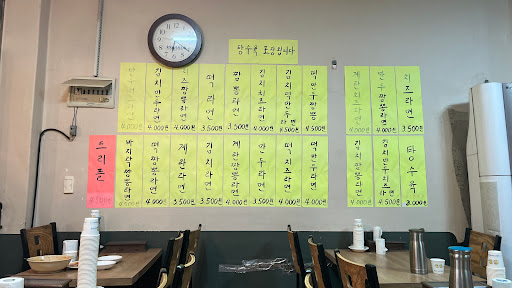 탕수육 포장됩니다
4.000원
김치만두라면
4.000원
치즈짬뽕라면
4.000원
떡라면
3.500원
짬뽕라면
3.500원
김치치즈라면
4.000원
김치떡만두라면
4.000원
떡만두짬뽕
4.000원
계란치즈라면
4.000원
만두짬뽕라면
4.000원
치즈라면
3.500원
트리플
4.500원
바지락짬뽕라면
4.000원
떡짬뽕라면
4.000원
계란라면
3.500원
김치라면
3.500원
계란짬뽕라면
4.000원
만두라면
3.500원
떡치즈라면
4.000원
떡만두라면
4.000원
김치짬뽕라면
4.000원
김치만두치즈라면
4.500원
탕수육
8.000원